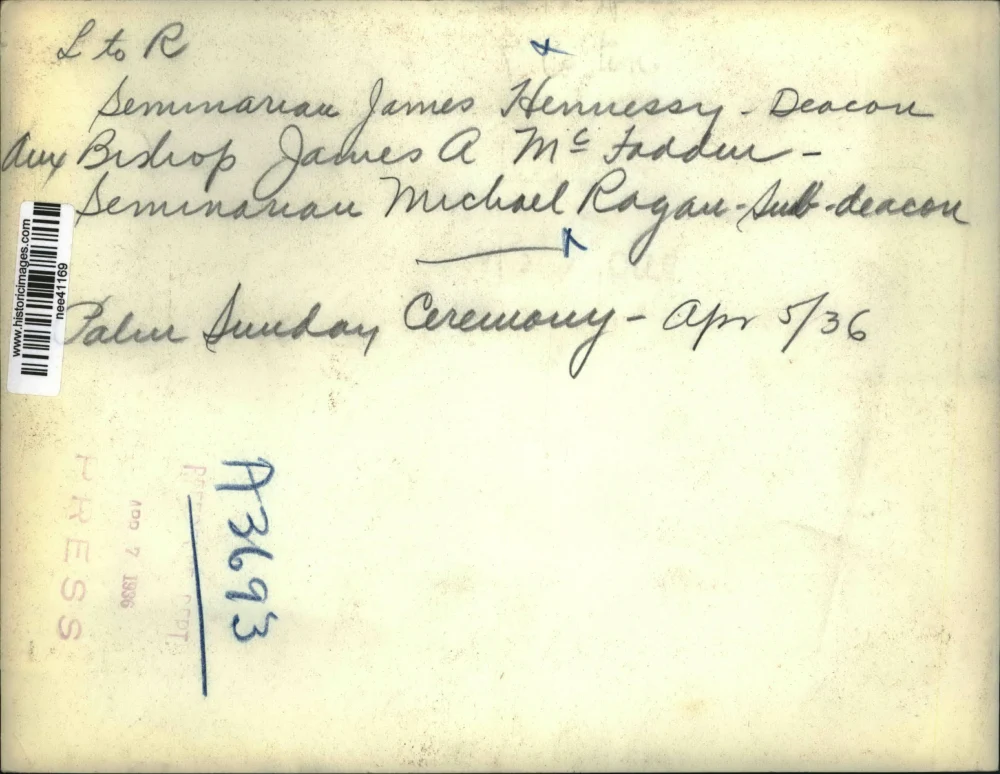 L to R
Seminarian James Hennessy - Deacon
Aux Bishop James A McFadden -
Seminarian Michael Ragan - Sub-deacon
Palm Sunday Ceremony - Apr 5/36
www.historicimages.com
nee41169
A3693
DEPT.
APR 7 1936
PRESS